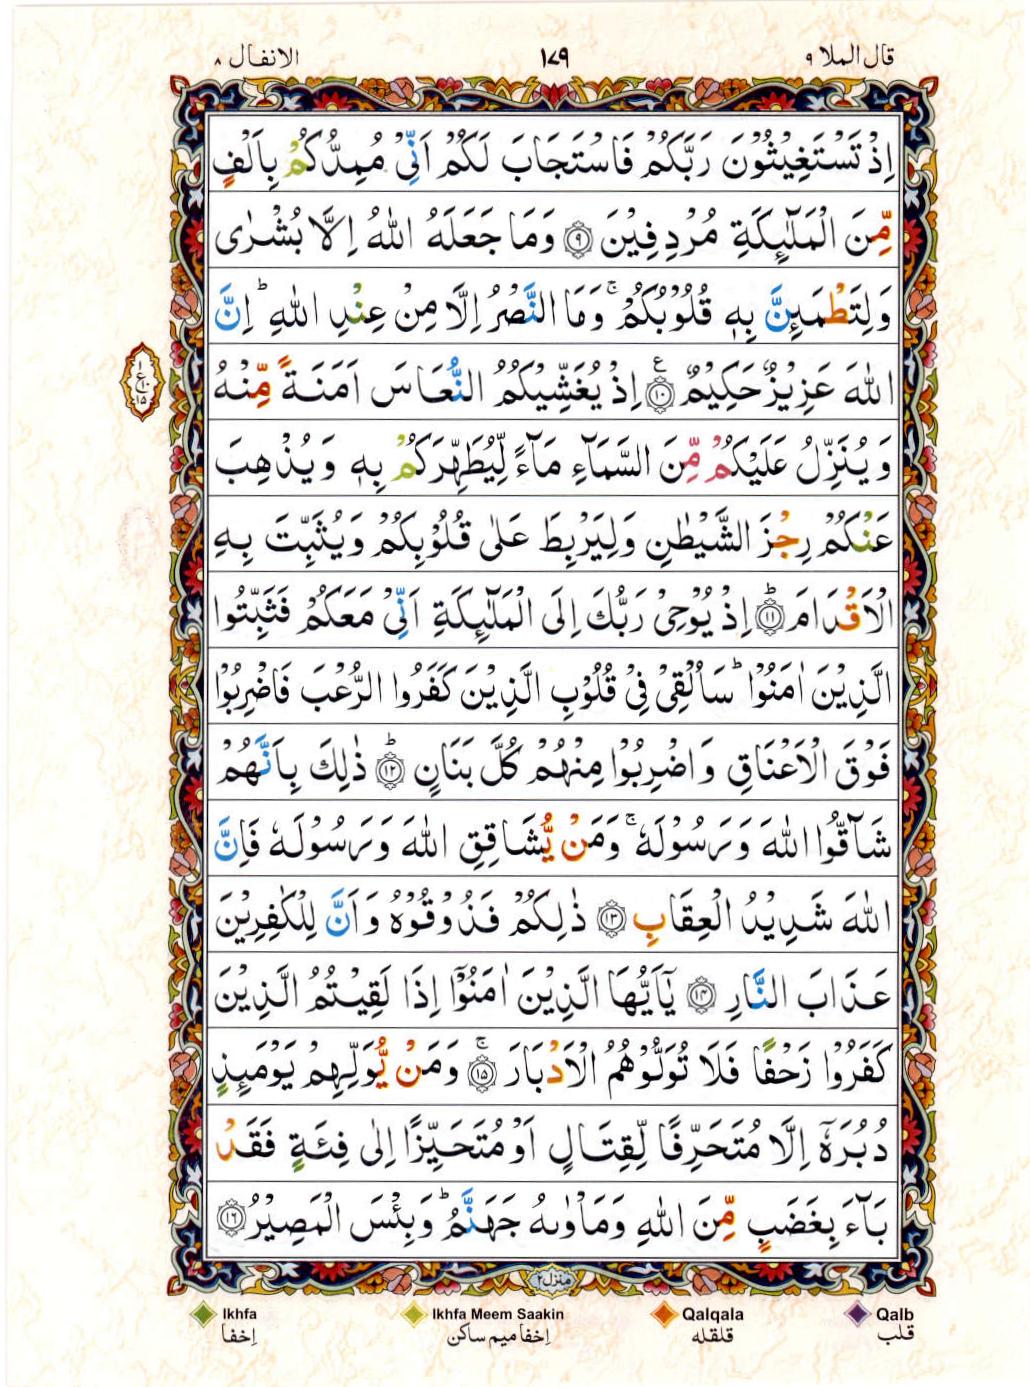 قال الملا ٩
١٧٩
الانفال ٨
اِذۡ تَسۡتَغِيۡثُوۡنَ رَبَّكُمۡ فَاسۡتَجَابَ لَكُمۡ اَنِّىۡ مُمِدُّكُمۡ بِاَلۡفٍ
مِّنَ الۡمَلٰٓٮِٕكَةِ مُرۡدِفِيۡنَ ۹ وَمَا جَعَلَهُ اللّٰهُ اِلَّا بُشۡرٰى
وَلِتَطۡمَٮِٕنَّ بِهٖ قُلُوۡبُكُمۡ‌ۚ وَمَا النَّصۡرُ اِلَّا مِنۡ عِنۡدِ اللّٰهِ‌ؕ اِنَّ
اللّٰهَ عَزِيۡزٌ حَكِيۡمٌ ۱۰ ع اِذۡ يُغَشِّيۡكُمُ النُّعَاسَ اَمَنَةً مِّنۡهُ
١
ع
١٠
١٥
وَيُنَزِّلُ عَلَيۡكُمۡ مِّنَ السَّمَآءِ مَآءً لِّيُطَهِّرَكُمۡ بِهٖ وَيُذۡهِبَ
عَنۡكُمۡ رِجۡزَ الشَّيۡطٰنِ وَلِيَرۡبِطَ عَلٰى قُلُوۡبِكُمۡ وَيُثَبِّتَ بِهِ
الۡاَقۡدَامَ ؕ‏ ۱۱ اِذۡ يُوۡحِىۡ رَبُّكَ اِلَى الۡمَلٰٓٮِٕكَةِ اَنِّىۡ مَعَكُمۡ فَثَبِّتُوا
الَّذِيۡنَ اٰمَنُوۡا‌ ؕ سَاُلۡقِىۡ فِىۡ قُلُوۡبِ الَّذِيۡنَ كَفَرُوا الرُّعۡبَ فَاضۡرِبُوۡا
فَوۡقَ الۡاَعۡنَاقِ وَاضۡرِبُوۡا مِنۡهُمۡ كُلَّ بَنَانٍ ؕ ۱۲ ذٰلِكَ بِاَنَّهُمۡ
شَآقُّوا اللّٰهَ وَرَسُوۡلَهٗ‌ ۚ وَمَنۡ يُّشَاقِقِ اللّٰهَ وَرَسُوۡلَهٗ فَاِنَّ
اللّٰهَ شَدِيۡدُ الۡعِقَابِ ۱۳ ذٰلِكُمۡ فَذُوۡقُوۡهُ وَاَنَّ لِلۡكٰفِرِيۡنَ
عَذَابَ النَّارِ ۱۴ يٰۤاَيُّهَا الَّذِيۡنَ اٰمَنُوۡۤا اِذَا لَقِيۡتُمُ الَّذِيۡنَ
كَفَرُوۡا زَحۡفًا فَلَا تُوَلُّوۡهُمُ الۡاَدۡبَارَ‌ۚ ۱۵ وَمَنۡ يُّوَلِّهِمۡ يَوۡمَٮِٕذٍ
دُبُرَهٗۤ اِلَّا مُتَحَرِّفًا لِّقِتَالٍ اَوۡ مُتَحَيِّزًا اِلٰى فِئَةٍ فَقَدۡ
بَآءَ بِغَضَبٍ مِّنَ اللّٰهِ وَمَاۡوٰٮهُ جَهَنَّمُ‌ؕ وَبِئۡسَ الۡمَصِيۡرُ ۱۶
منزل ٢
Ikhfa
Ikhfa Meem Saakin
Qalqala
Qalb
اِخفا
اِخفا میم ساکن
قلقله
قلب